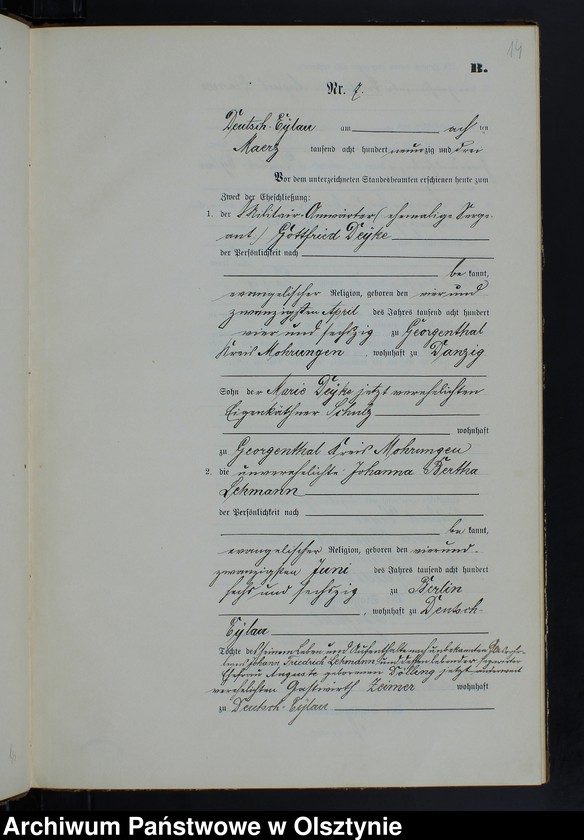 14
B.
Nr. 7.
Deutsch-Eylau am acht ten
Maerz tausend acht hundert neunzig und drei
Vor dem unterzeichneten Standesbeamten erschienen heute zum
Zweck der Eheschließung:
1. der Militair-Anwärter (ehemalige Serge-
ant) Gottfried Deyke
der Persönlichkeit nach
be kannt,
evangelischer Religion, geboren den vier und
zwanzigsten April des Jahres tausend acht hundert
vier und sechszig zu Georgenthal
Kreis Mohrungen, wohnhaft zu Danzig
Sohn der Marie Deyke jetzt verehelichten
Eigenkäthner Schulz
wohnhaft
zu Georgenthal Kreis Mohrungen
2. die unverehelichte Johanna Bertha
Lehmann
der Persönlichkeit nach
be kannt,
evangelischer Religion, geboren den vierund-
zwanzigsten Juni des Jahres tausend acht hundert
sechs und sechszig zu Berlin
, wohnhaft zu Deutsch-
Eylau
Tochter des seinem Leben und Aufenthalte nach unbekannten
Johann Friedrich Lehmann und dessen lebender separirter
Ehefrau Auguste geborenen Dölling jetzt anderweit
verehelichten Gastwirth Zeimer wohnhaft
zu Deutsch-Eylau
Archiwum Państwowe w Olsztynie